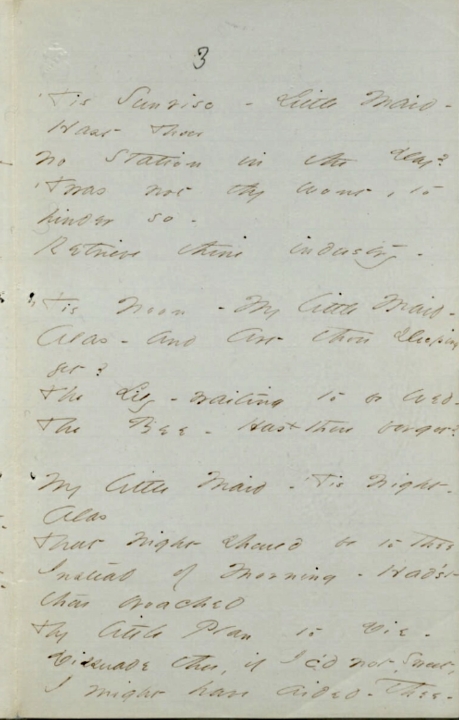 3
'Tis Sunrise - Little Maid -
Hast Thou
no Station in the Day?
'Twas not thy wont, to
hinder so -
Retrieve thine industry -
'Tis Noon - My little Maid -
Alas - and art thou sleeping
yet?
The Lily - waiting to be Wed -
The Bee - Hast thou forgot?
My little Maid - 'Tis Night -
Alas
That Night should be to thee
Instead of Morning - Had'st
thou broached
Thy little Plan to Die -
Dissuade thee, if I c'd not, Sweet,
I might have aided - Thee -